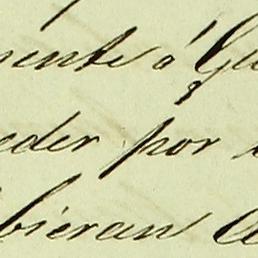 nente á
eder por
bieran